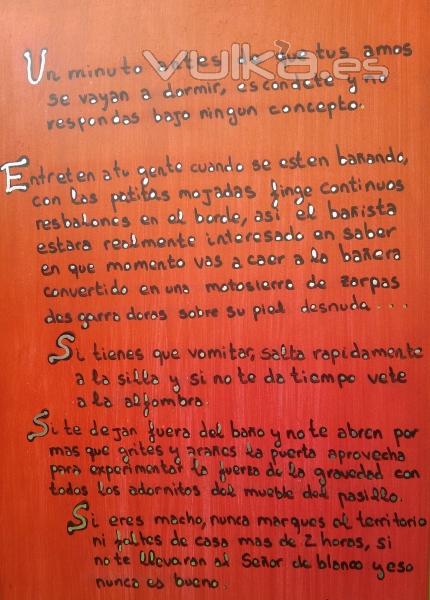 vulka.es
Un minuto antes de que tus amos
se vayan a dormir, escondete y no
respondas bajo ningun concepto.
Entreten a tu gente cuando se esten bañando,
con las patitas mojadas finge continuos
resbalones en el borde, asi el bañista
estara realmente interesado en saber
en que momento vas a caer a la bañera
convertido en una motosierra de zarpas
desgarradoras sobre su piel desnuda....
Si tienes que vomitar, salta rapidamente
a la silla y si no te da tiempo vete
a la alfombra.
Si te dejan fuera del baño y no te abren por
mas que grites y arañes la puerta aprovecha
para experimentar la fuerza de la gravedad con
todos los adornitos del mueble del pasillo.
Si eres macho, nunca marques el territorio
ni faltes de casa mas de 2 horas, si
no te llevaran al Señor de blanco y eso
nunca es bueno.